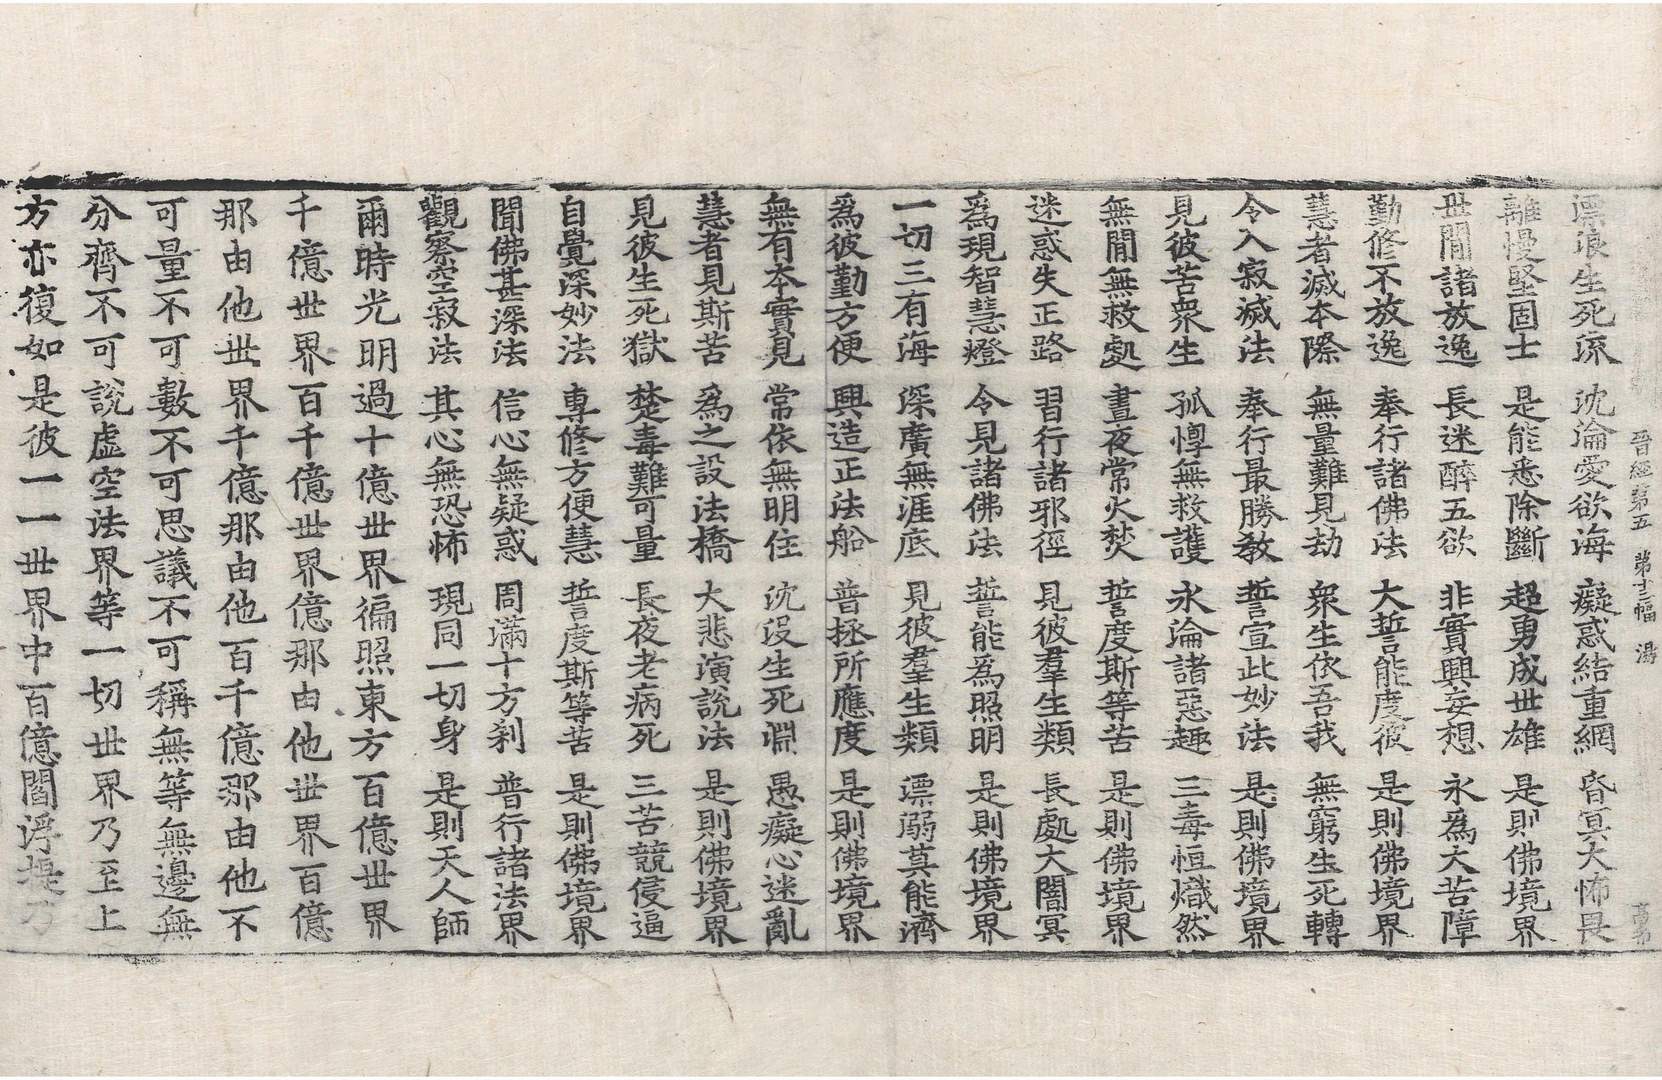 晉經第五 第十三幅 湯
漂浪生死流 沈淪愛欲海 癡惑結重網 昏冥大怖畏
離慢堅固士 是能悉除斷 超勇成世雄 是則佛境界
世間諸放逸 長迷醉五欲 非實興妄想 永為大苦障
勤修不放逸 奉行諸佛法 大誓能度彼 是則佛境界
慧者滅本際 無量難見劫 衆生依吾我 無窮生死轉
令入寂滅法 奉行最勝教 誓宣此妙法 是則佛境界
見彼苦衆生 孤惸無救護 永淪諸惡趣 三毒恒熾然
無間無救處 晝夜常火焚 誓度斯等苦 是則佛境界
迷惑失正路 習行諸邪徑 見彼羣生類 長處大闇冥
為現智慧燈 令見諸佛法 誓能為照明 是則佛境界
一切三有海 深廣無涯底 見彼羣生類 漂溺莫能濟
為彼勤方便 興造正法船 普拯所應度 是則佛境界
無有本實見 常依無明住 沈没生死淵 愚癡心迷亂
慧者見斯苦 為之設法橋 大悲演說法 是則佛境界
見彼生死獄 楚毒難可量 長夜老病死 三苦競侵逼
自覺深妙法 專修方便慧 誓度斯等苦 是則佛境界
聞佛甚深法 信心無疑惑 周滿十方刹 普行諸法界
觀察空寂法 其心無恐怖 現同一切身 是則天人師
爾時光明過十億世界徧照東方百億世界
千億世界百千億世界億那由他世界百億
那由他世界千億那由他百千億那由他不
可量不可數不可思議不可稱無等無邊無
分齊不可說虛空法界等一切世界乃至上
方亦復如是彼一一世界中百億閻浮提乃